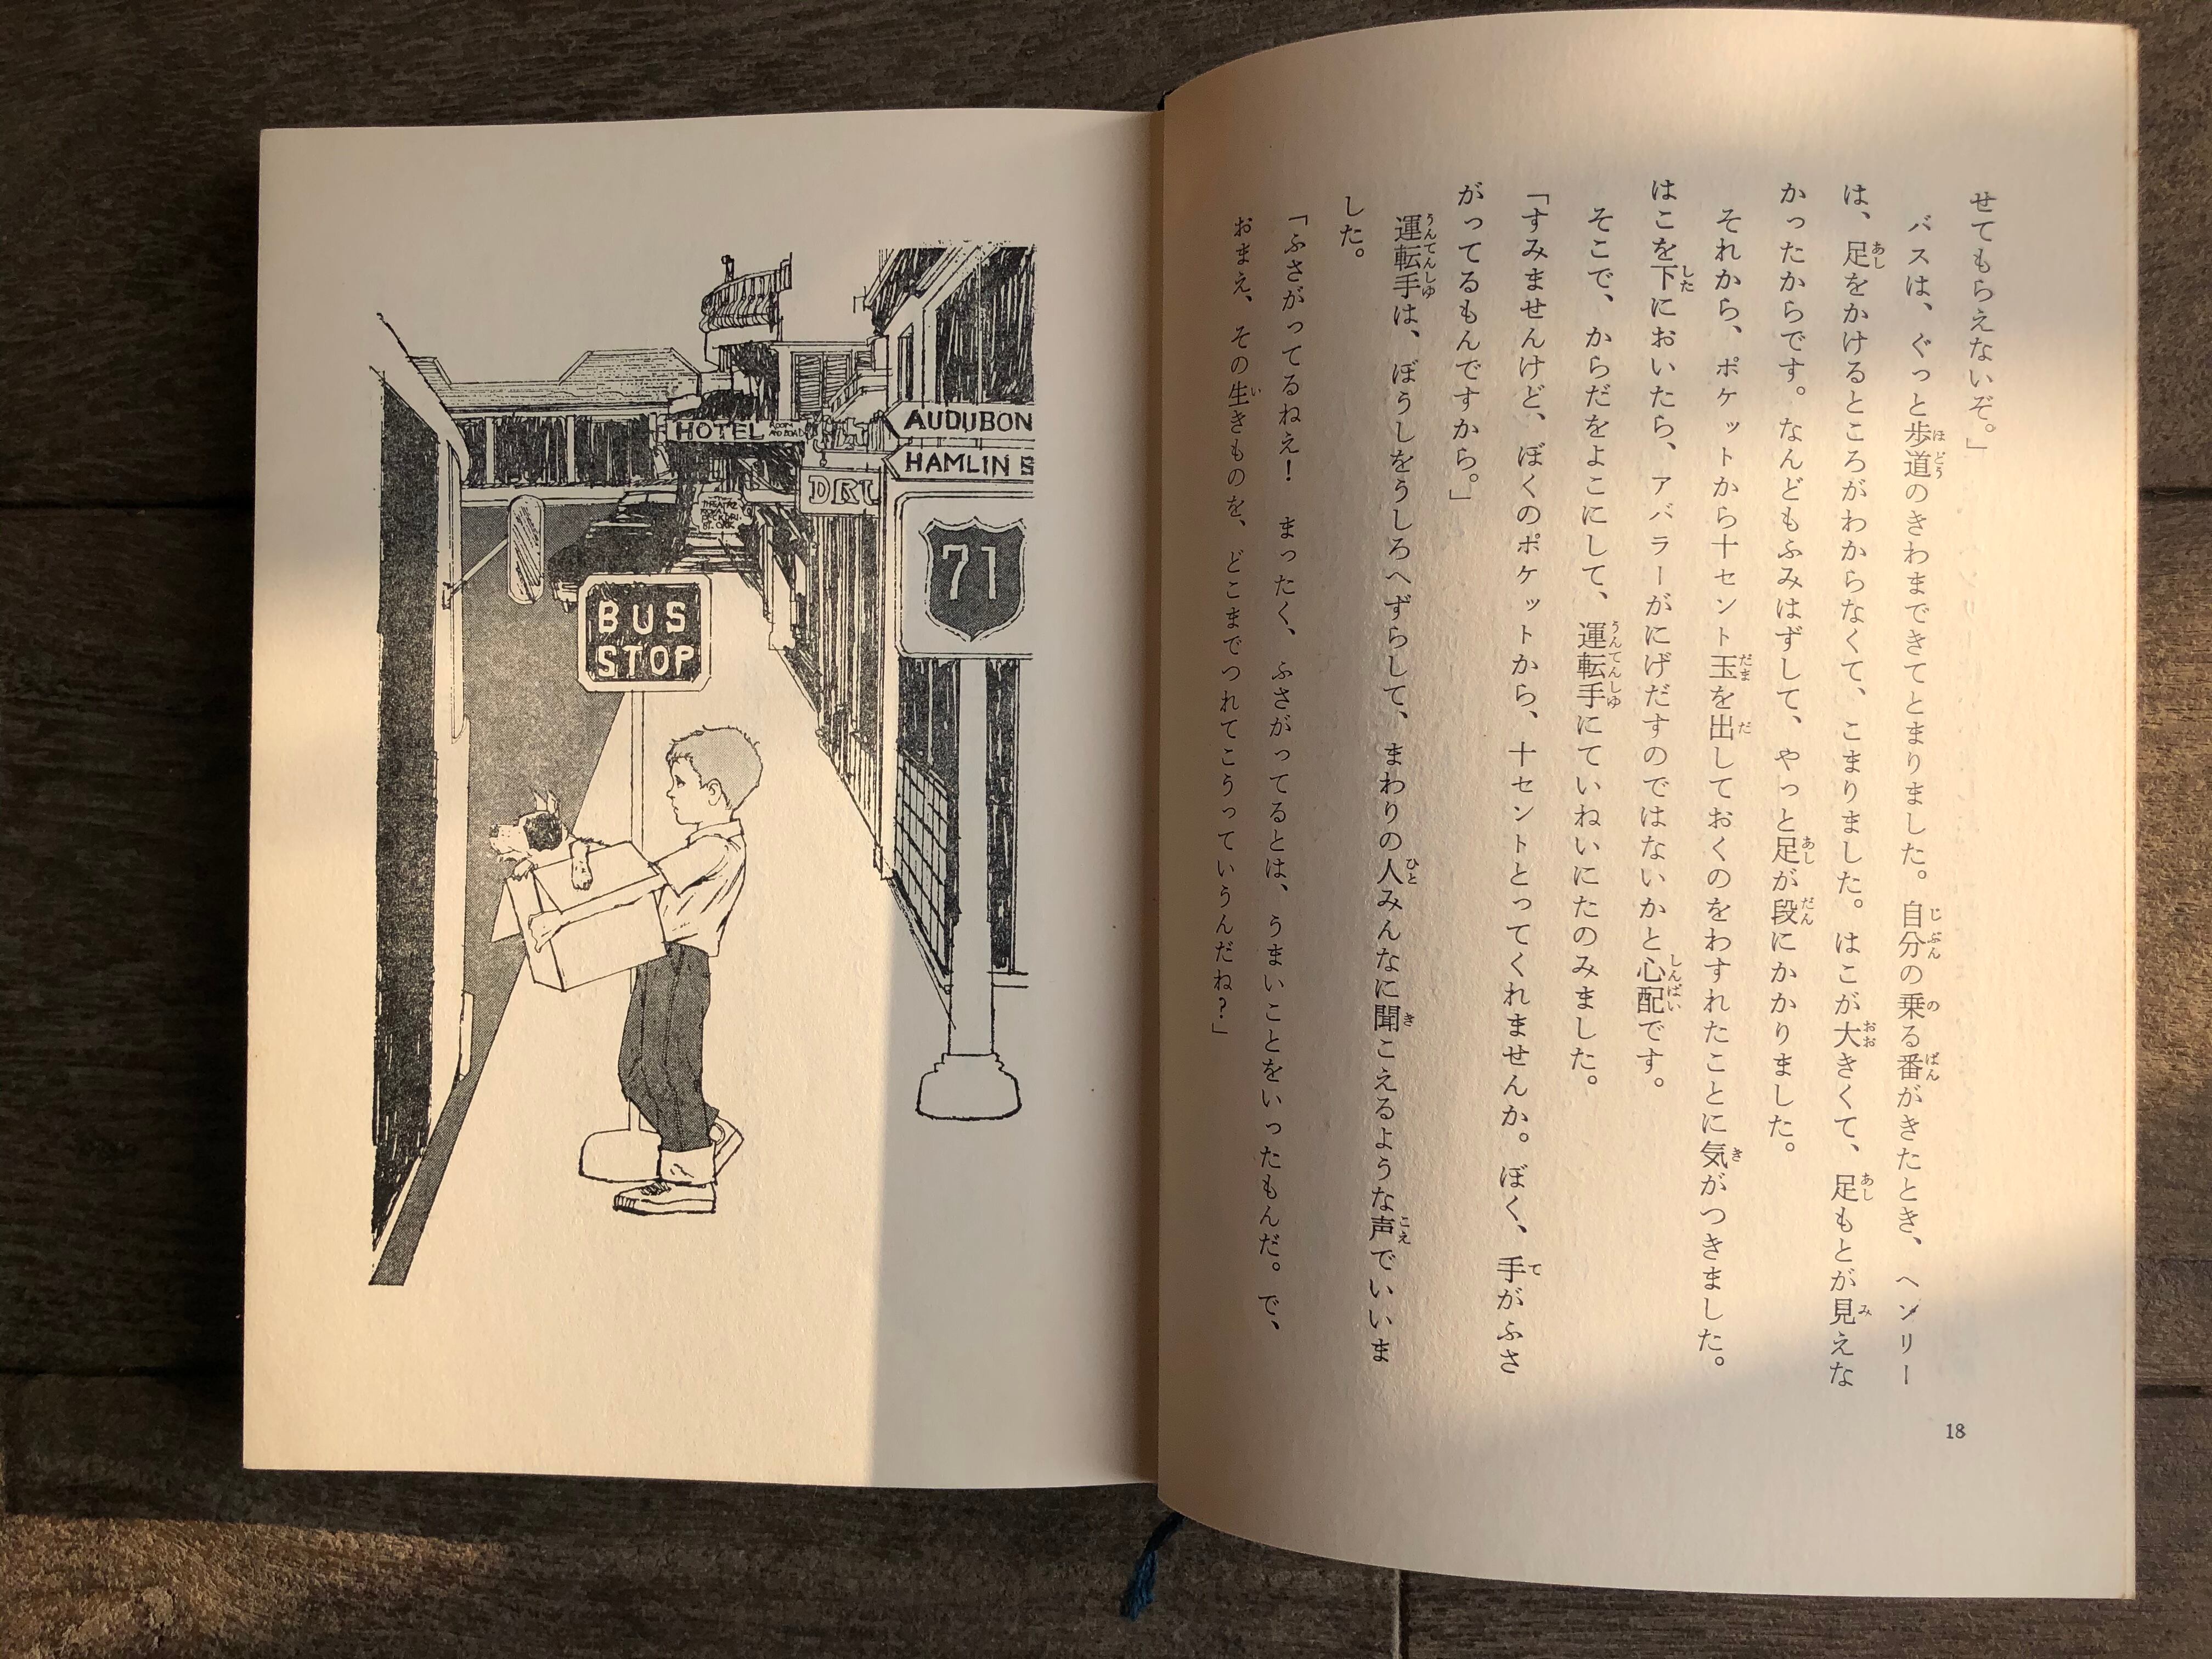 せてもらえないぞ。」
バスは、ぐっと歩道のきわまできてとまりました。自分の乗る番がきたとき、ヘンリー
は、足をかけるところがわからなくて、こまりました。はこが大きくて、足もとが見えな
かったからです。なんどもふみはずして、やっと足が段にかかりました。
それから、ポケットから十セント玉を出しておくのをわすれたことに気がつきました。
はこを下においたら、アバラーがにげだすのではないかと心配です。
そこで、からだをよこにして、運転手にていねいにたのみました。
「すみませんけど、ぼくのポケットから、十セントとってくれませんか。ぼく、手がふさ
がってるもんですから。」
運転手は、ぼうしをうしろへずらして、まわりの人みんなに聞こえるような声でいいま
した。
「ふさがってるねえ！　まったく、ふさがってるとは、うまいことをいったもんだ。で、
おまえ、その生きものを、どこまでつれてこうっていうんだね？」
18
AUDUBON
HAMLIN S
HOTEL
ROOM
AND BOARD
DRU
71
THEATRE
BUS
STOP